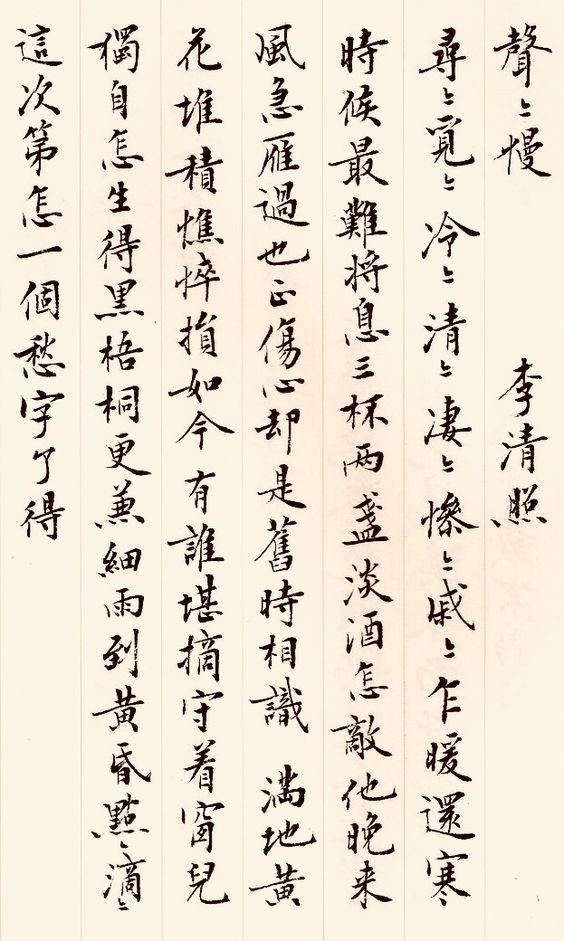 聲〻慢 李清照
尋〻覓〻冷〻清〻凄〻慘〻戚〻乍暖還寒
時候最難將息三杯兩盞淡酒怎敵他晚来
風急雁過也正傷心却是舊時相識 滿地黄
花堆積憔悴損如今有誰堪摘守着窗兒
獨自怎生得黑梧桐更兼細雨到黄昏點〻滴〻
這次第怎一個愁字了得